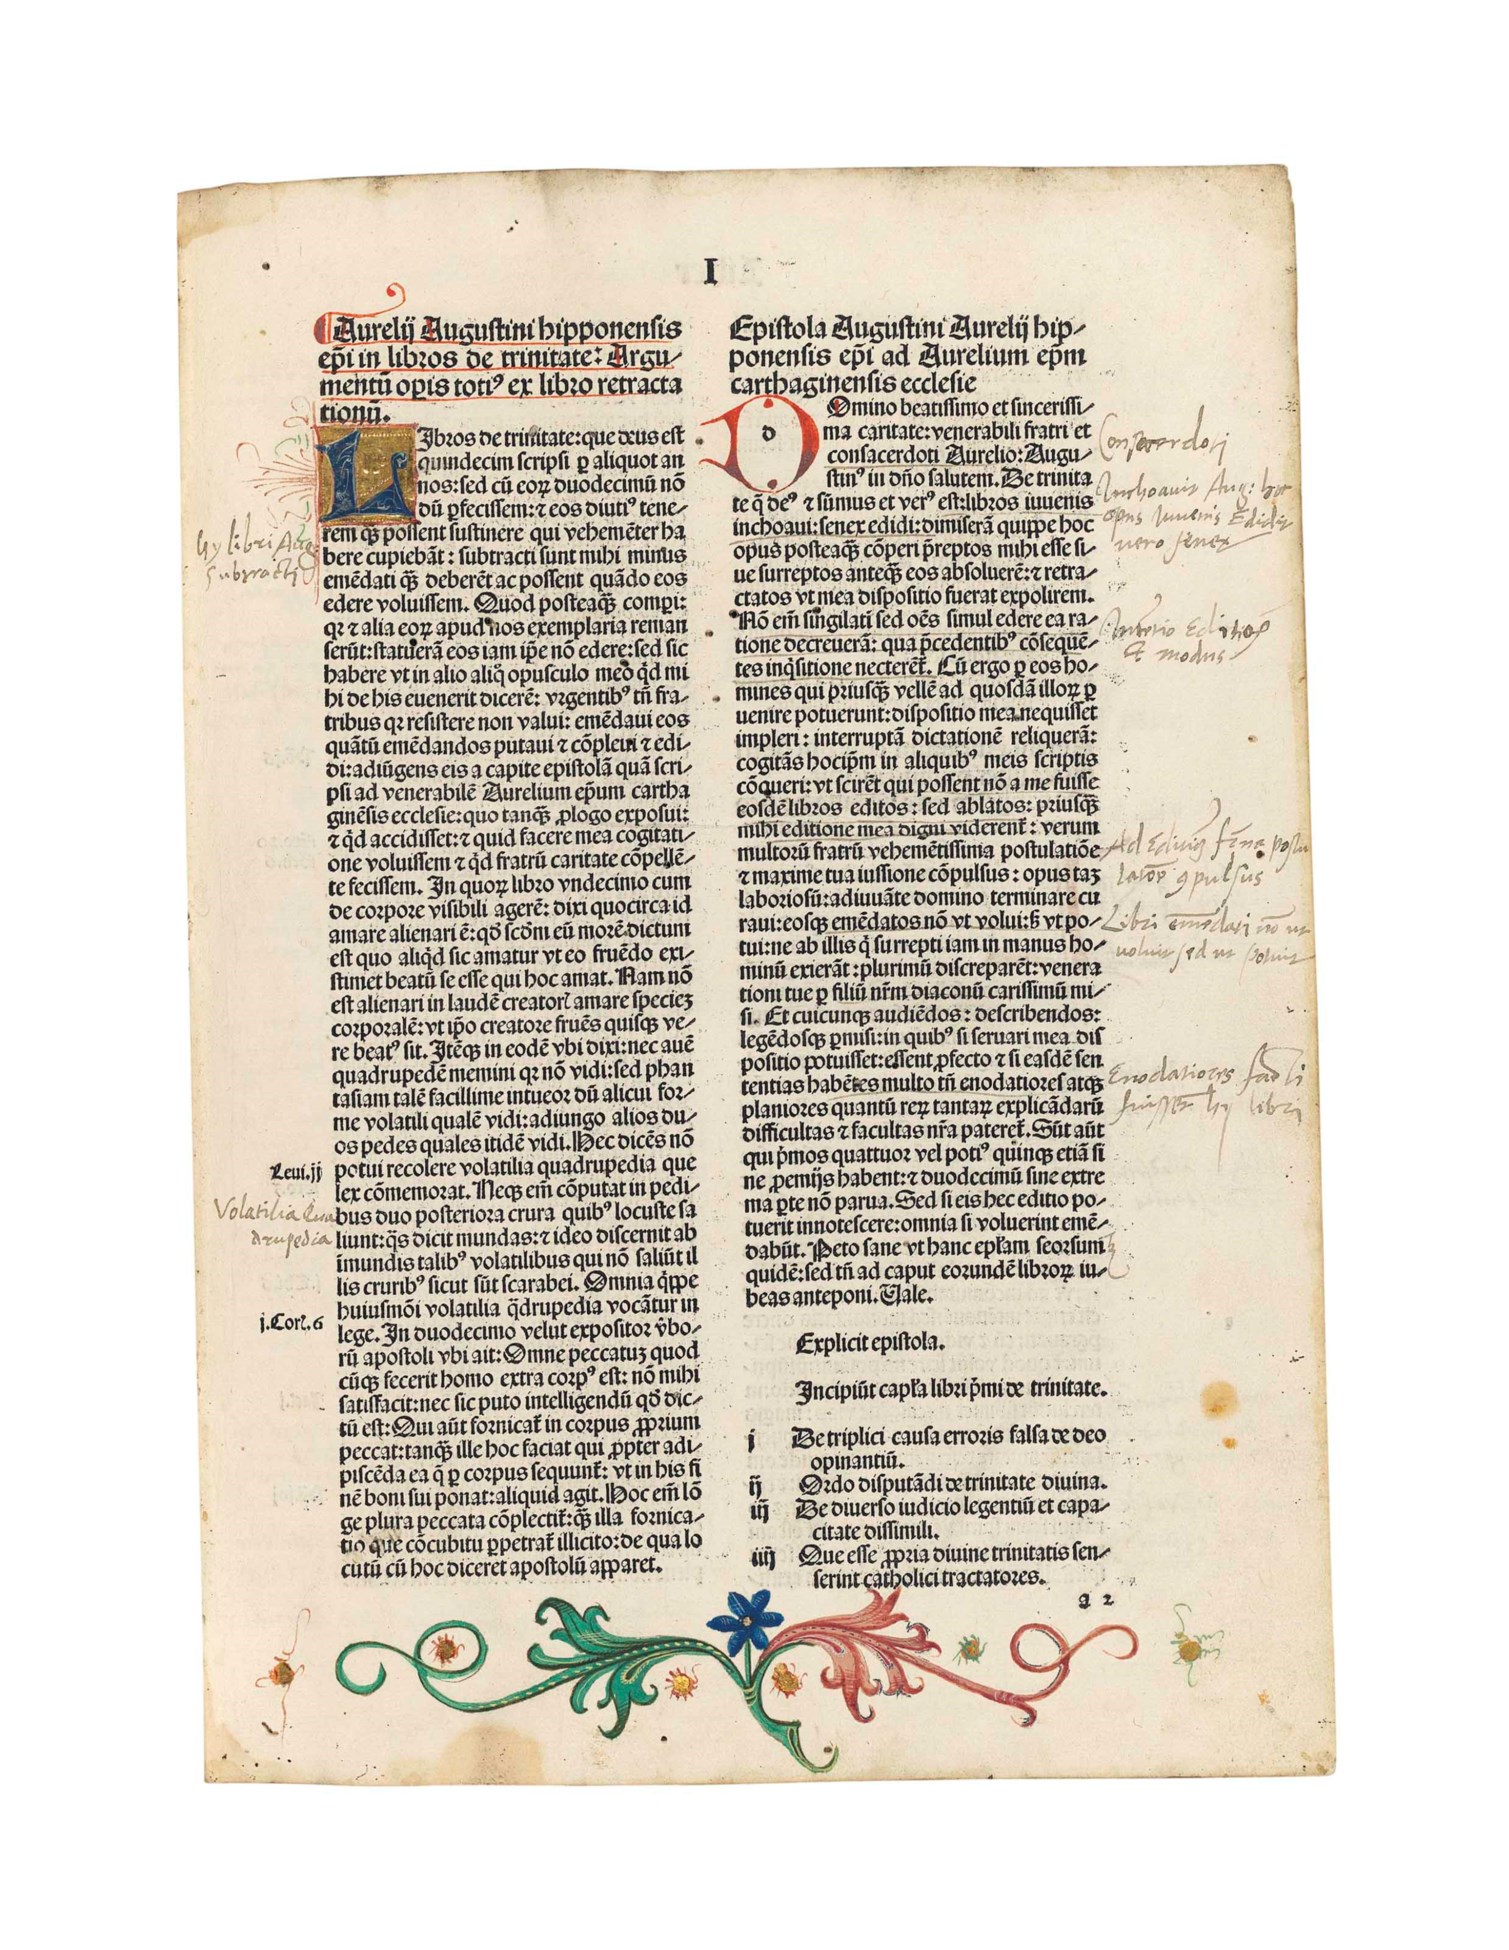 I
Aurelij Augustini hipponensis
ep̄i in libros de trinitate: Argu-
mentū oꝑis totiꝰ ex libro retracta
tionū.
LIbros de trinitate: que deus est
quindecim scripsi ꝑ aliquot an
nos: sed cū eoꝝ duodecimū nō
dū ꝑfecissem: ⁊ eos diutiꝰ tene-
rem qꝫ̄ possent sustinere qui vehemēter ha
bere cupiebāt: subtracti sunt mihi minus
emēdati qꝫ̄ deberēt ac possent quādo eos
edere voluissem. Quod posteaqꝫ̄ comꝑi:
qꝛ ⁊ alia eoꝝ apud nos exemplaria reman
serūt: statuerā eos iam ip̄e nō edere: sed sic
habere vt in alio aliq̊ opusculo meo qd̓ mi
hi de his euenerit dicerē: vrgentibꝰ tn̄ fra-
tribus qꝛ resistere non valui: emēdaui eos
quātū emēdandos putaui ⁊ cōpleui ⁊ edi-
di: adiūgens eis a capite epistolā quā scri-
psi ad venerabilē Aurelium ep̄um cartha
ginēsis ecclesie: quo tanqꝫ̄ ꝓlogo exposui:
⁊ qd̓ accidisset: ⁊ quid facere mea cogitati-
one voluissem ⁊ qd̓ fratrū caritate cōpellē-
te fecissem. In quoꝝ libro vndecimo cum
de corpore visibili agerē: dixi quocirca id
amare alienari ē: qd̓ scd̄m eū morē dictum
est quo aliqd̓ sic amatur vt eo fruēdo exi-
stimet beatū se esse qui hoc amat. Nam nō
est alienari in laudē creatorꝭ amare speciez
corporalē: vt ip̄o creatore fruēs quisqꝫ ve-
re beatꝰ sit. Itēqꝫ in eodē vbi dixi: nec auē
quadrupedē memini qꝛ nō vidi: sed phan
tasiam talē facillime intueor dū alicui for-
me volatili qualē vidi: adiungo alios du-
os pedes quales itidē vidi. Hec dicēs nō
Leui. ij potui recolere volatilia quadrupedia que
lex cōmemorat. Neqꝫ em̄ cōputat in pedi-
bus duo posteriora crura quibꝰ locuste sa
liunt: q̄s dicit mundas: ⁊ ideo discernit ab
īmundis talibꝰ volatilibus qui nō saliūt il
lis cruribꝰ sicut sūt scarabei. Omnia q̄ppe
huiusmōi volatilia q̄drupedia vocātur in
j. Corꝭ. 6 lege. In duodecimo velut expositor v̓bo-
rū apostoli vbi ait: Omne peccatuz quod
cūqꝫ fecerit homo extra corpꝰ est: nō mihi
satisfacit: nec sic puto intelligendū qd̓ dic-
tū est: Qui aūt fornicat̄ in corpus ꝓprium
peccat: tanqꝫ̄ ille hoc faciat qui ꝓpter adi-
piscēda ea q̄ ꝑ corpus sequunt̄: vt in his fi
nē boni sui ponat: aliquid agit. Hoc em̄ lō
ge plura peccata cōplectit̄: qꝫ̄ illa fornica-
tio que cōcubitu ꝑpetrat̄ illicito: de qua lo
cutū cū hoc diceret apostolū apparet.
hy libri Aug:
subtracti
Volatilia Qua
drupedia
Epistola Augustini Aurelij hip-
ponensis ep̄i ad Aurelium ep̄m
carthaginensis ecclesie
d
DOmino beatissimo et sincerissi-
ma caritate: venerabili fratri et
consacerdoti Aurelio: Augu-
stinꝰ in dn̄o salutem. De trinita
te q̄ deꝰ ⁊ sūmus et verꝰ est: libros iuuenis
inchoaui: senex edidi: dimiserā quippe hoc
opus posteaqꝫ̄ cōperi p̄reptos mihi esse si-
ue surreptos anteqꝫ̄ eos absoluerē: ⁊ retra-
ctatos vt mea dispositio fuerat expolirem.
Nō em̄ singilati᷈ sed oēs simul edere ea ra-
tione decreuerā: qua p̄cedentibꝰ cōsequē-
tes inq̓sitione necterēt̄. Cū ergo ꝑ eos ho-
mines qui priusqꝫ̄ vellē ad quosdā illoꝝ ꝑ
uenire potuerunt: dispositio mea nequisset
impleri: interruptā dictationē reliquerā:
cogitās hocip̄m in aliquibꝰ meis scriptis
cōqueri: vt scirēt qui possent nō a me fuisse
eosdē libros editos: sed ablatos: priusqꝫ̄
mihi editione mea digni viderent̄: verum
multorū fratrū vehemētissima postulatiōe
⁊ maxime tua iussione cōpulsus: opus taꝫ
laboriosū: adiuuāte domino terminare cu
raui: eosqꝫ emēdatos nō vt volui: s̓ vt po-
tui: ne ab illis q̓ surrepti iam in manus ho-
minū exierāt: plurimū discreparēt: venera
tioni tue ꝑ filiū nr̄m diaconū carissimū mi-
si. Et cuicunqꝫ audiēdos: describendos:
legēdosqꝫ ꝑmisi: in quibꝰ si seruari mea dis
positio potuisset: essent ꝓfecto ⁊ si easdē sen
tentias habētes multo tn̄ enodatiores atqꝫ
planiores quantū reꝝ tantaꝝ explicādarū
difficultas ⁊ facultas nr̄a pateret̄. Sūt aūt
qui p̓mos quattuor vel potiꝰ quinqꝫ etiā si
ne ꝓemijs habent: ⁊ duodecimū sine extre
ma ꝑte nō parua. Sed si eis hec editio po-
tuerit innotescere: omnia si voluerint emē-
dabūt. Peto sane vt hanc epl̓am seorsum
quidē: sed tn̄ ad caput eorundē libroꝝ iu-
beas anteponi. Vale.
Explicit epistola.
Incipiūt capl̓a libri p̓mi de trinitate.
j De triplici causa erroris falsa de deo
opinantiū.
ij Ordo disputādi de trinitate diuina.
iij De diuerso iudicio legentiū et capa-
citate dissimili.
iiij Que esse ꝓpria diuine trinitatis sen-
serint catholici tractatores.
a 2
Inchoauit Aug: hoc
opus Iuuenis Edidit
uero senex
& modus
Libri emēdati nō ut
uoluit sed ut potuit
Enodatiores
hy libri